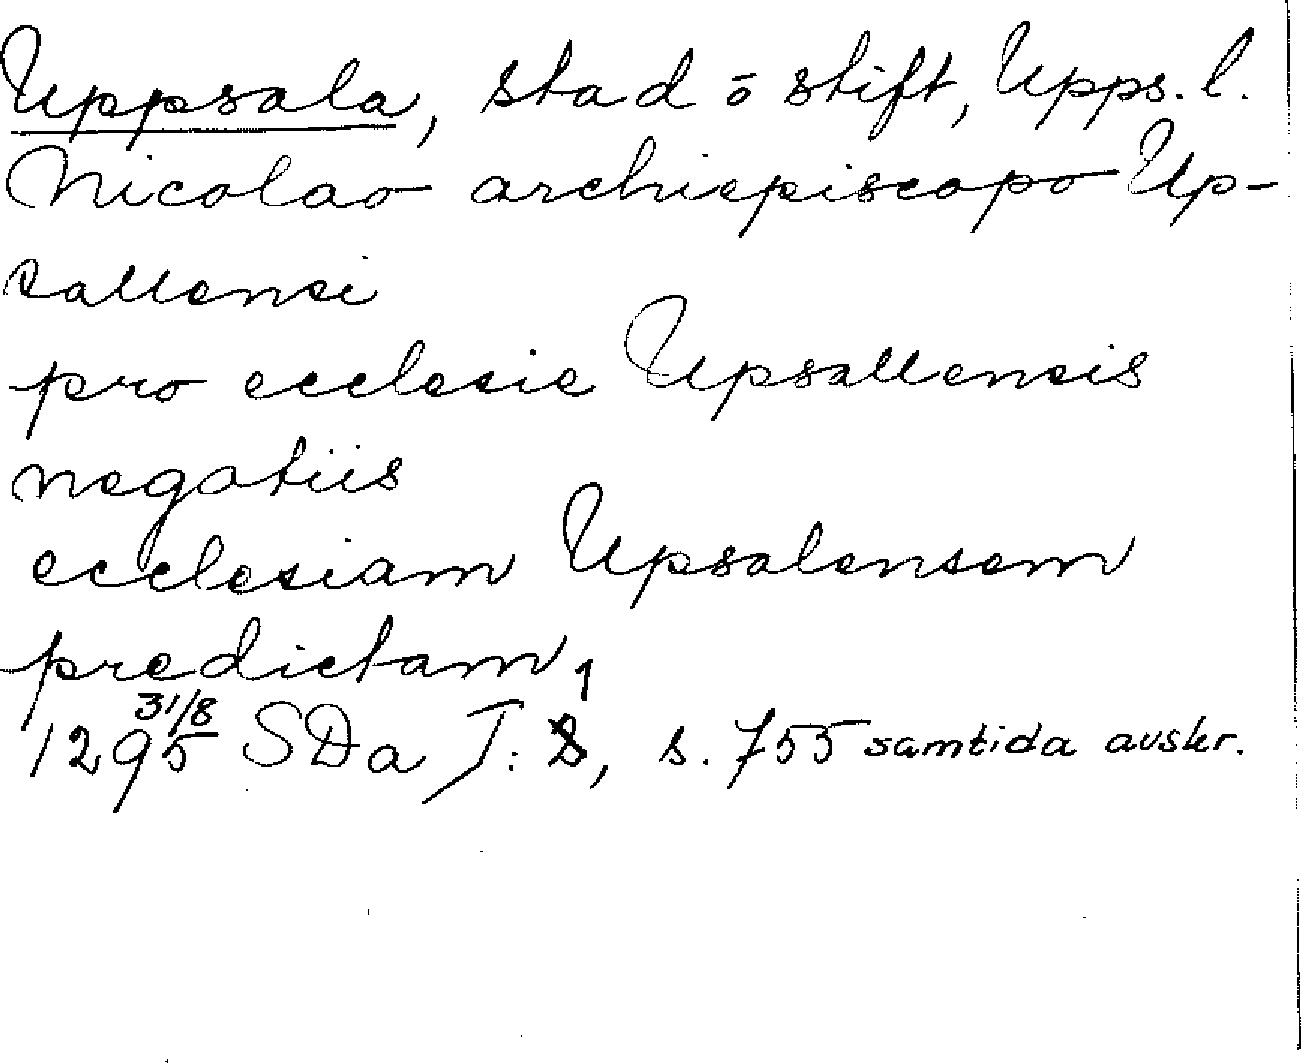 Uppsala, stad o stift, Upps. l.
Nicolao archiepiscopo Up-
sallensi
pro ecclesie Upsallensis
negotiis
ecclesiam Upsalensem
predictam
1295 31/8 SDa I: 1, s. 755 samtida avskr.